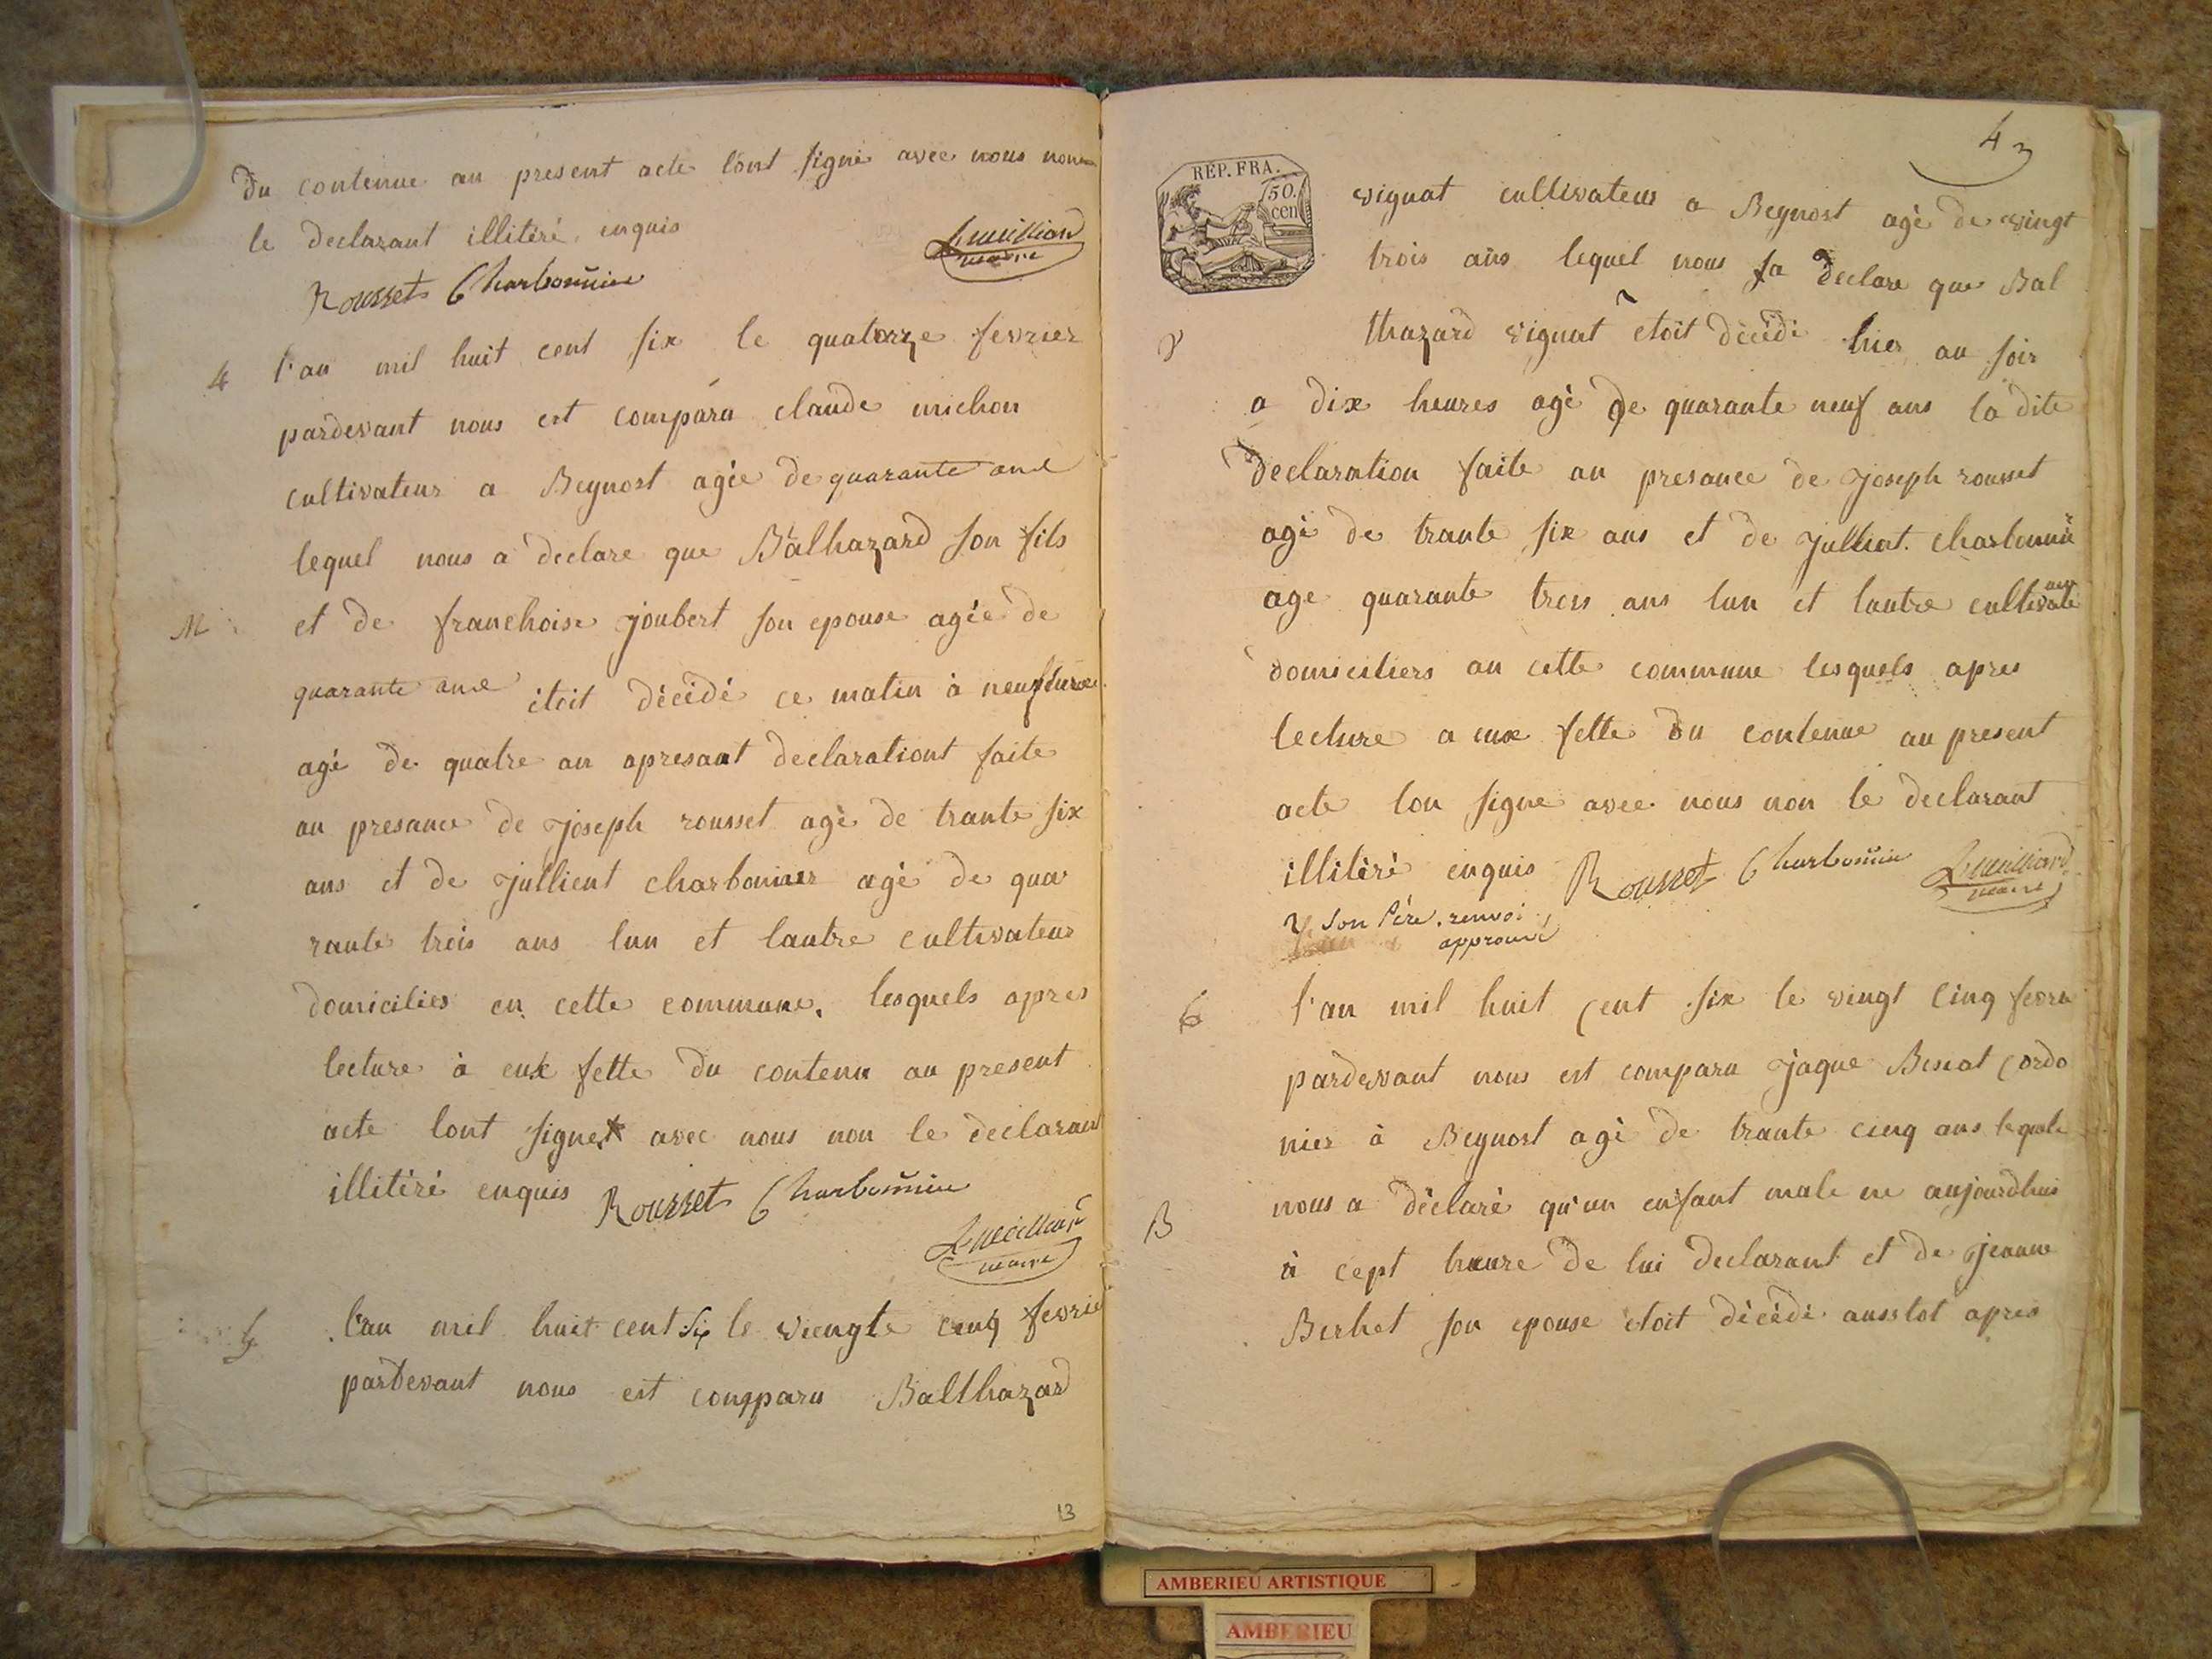 du contenue au present acte l'ont signé avec nous non
le declarant illitéré enquis
Rousset Charbonnier
maire
4 l'an mil huit cent six le quatorze fevrier
pardevant nous est comparu claude michon
cultivateur a Beynost agée de quarante ans
lequel nous a declare que Balhazard son fils
M et de franchoise joubert son epouse agée de
quarante ans étoit décédé ce matin à neuf
agé de quatre an apresant declarationt faite
au presance de Joseph rousset agé de trante six
ans et de Jullient charbonnier agé de qua
rante trois ans lun et lautre cultivateur
domiciliés en cette commune, lesquels apres
lecture à eux fette du contenu au present
acte lont signe avec nous non le declarant
illitéré enquis Rousset Charbonnier
maire
5 l'an mil huit cent six le viengte cinq fevrie
pardevant nous est compparu Balthazard
13
4
RÉP. FRA.
50.
cen
vignat cultivateur a Beynost agé de vingt
trois ans lequel nous a declare que Bal
thazard vignat étoit décédé hier au soir
a dix heures agé de quarante neuf ans la dite
declaration faite au presance de Joseph rousset
agé de trante six ans et de Julliat. charbonnié
age quarante trois ans lun et lautre cultivate
domiciliers au cette commune lesquels apres
lecture a eux fette du contenue au present
acte lon signe avec nous non le declarant
illitéré enquis Rousset Charbonnier
maire
son Père. renvoi
approuvé
6 l'an mil huit cent six le vingt cinq fevri
pardevant nous est comparu Jaque Benat cordo
nier à Beynost agé de trante cinq ans lequele
B nous a déclaré qu'un enfant male ne aujourdhui
à cept heure de lui declarant et de Jeanne
Berhet son epouse etoit décédé ausstot apres
AMBERIEU ARTISTIQUE
AMBERIEU